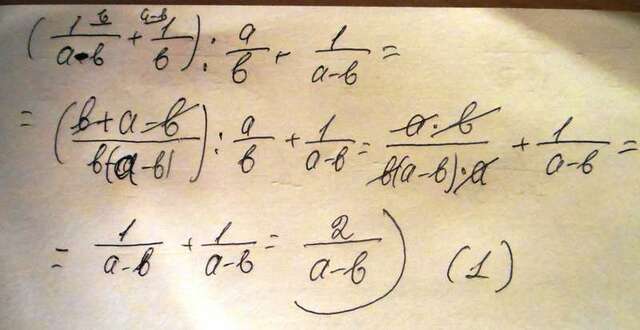 (1/(a-b) ^b + 1/b ^(a-b)) : a/b + 1/(a-b) =
= ((b+a-b)/(b(a-b))) : a/b + 1/(a-b) = (a·b)/(b(a-b)·a) + 1/(a-b) =
= 1/(a-b) + 1/(a-b) = 2/(a-b) ) (1)